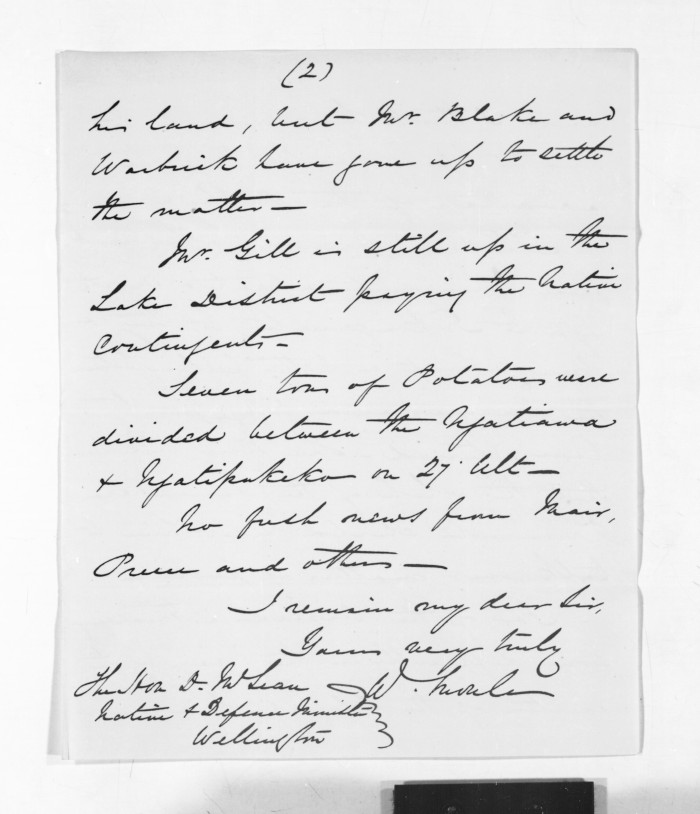 (2)
his land, but Mr. Blake and
Warbrick have gone up to settle
the matter —
Mr. Gill is still up in the
Lake District paying the Native
Contingents —
Seven tons of Potatoes were
divided between the Ngatiawa
& Ngatipukeko on 27' Ult —
No fresh news from Mair,
Preece and others —
I remain my dear Sir,
Yours very truly
W. Moule
The Hon D. McLean
Native & Defence Minister
Wellington